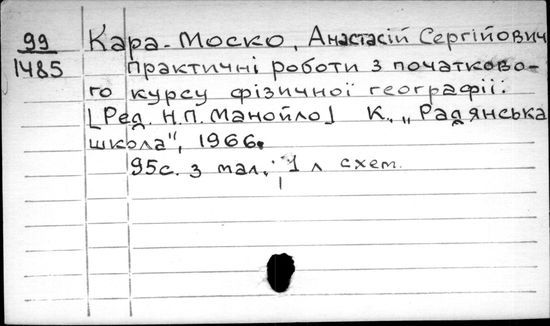 99 Кара-Моско, Анастасій Сергійович
1485 Практичні роботи з початково-
го курсу фізичної географії.
[Ред. Н.П. Манойло] К., „Радянська
школа", 1966.
95с. з мал.; 1 л схем.